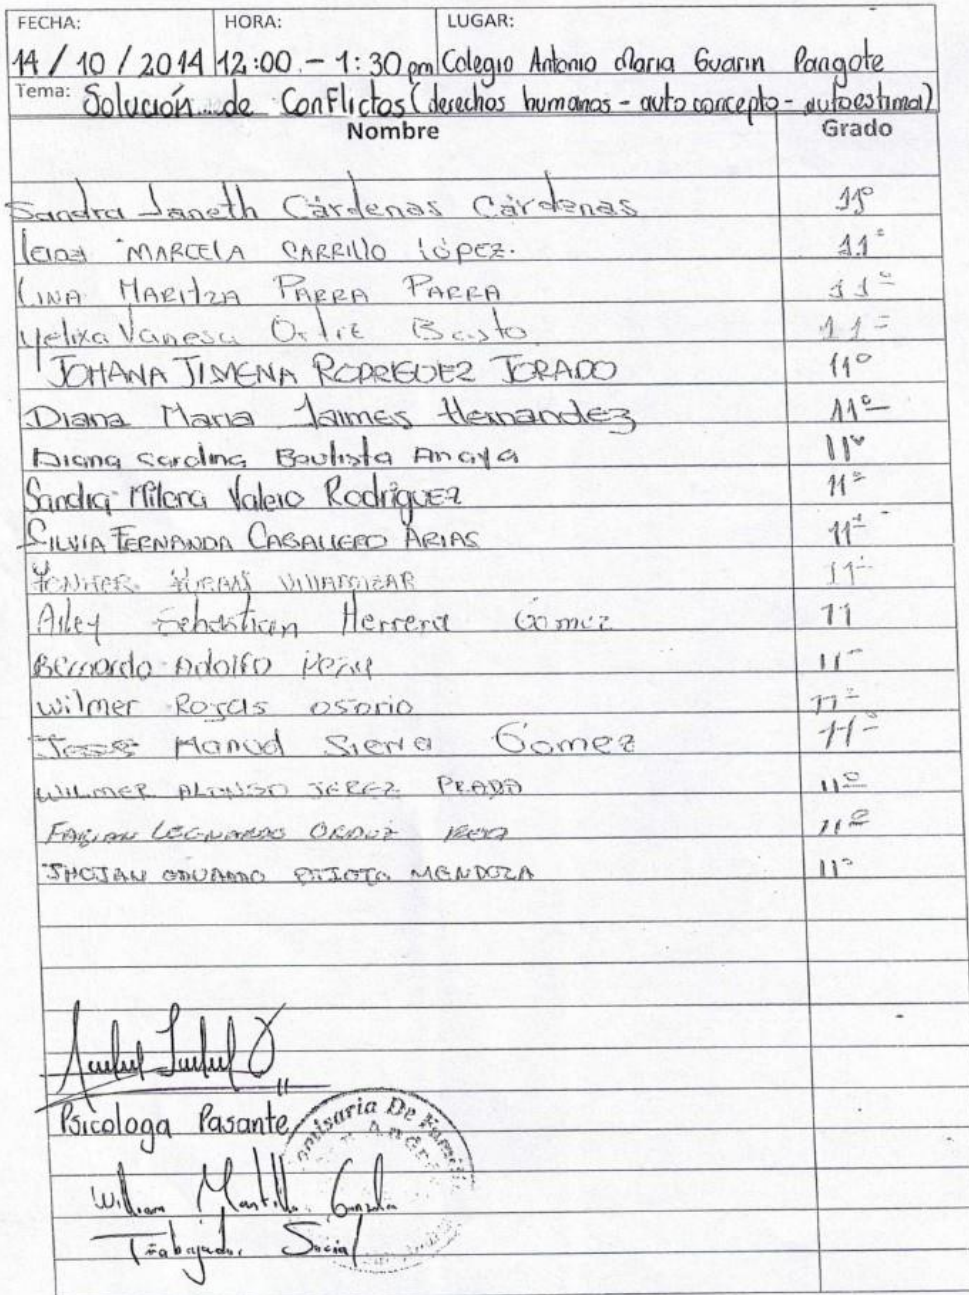 FECHA: HORA: LUGAR:
14 / 10 / 2014 12:00 - 1:30 pm Colegio Antonio Maria Guarin Pangote
Tema: Solución de Conflictos (derechos humanos - auto concepto - autoestima)
Nombre Grado
Sandra Janeth Cárdenas Cárdenas 11°
MARCELA CARRILLO LÓPEZ. 11°
LINA MARITZA PARRA PARRA 11°
Yelixa Vanesa Ortiz Basto 11°
JOHANA JIMENA RODRIGUEZ JURADO 11°
Diana Maria Jaimes Hernandez 11°
Diana carolina Bautista Anaya 11°
Sandra Milena Valero Rodriguez 11°
SILVIA FERNANDA CABALLERO ARIAS 11°
VILLAMIZAR 11°
Arley Sebastian Herrera Gomez 11
Bernardo Adolfo 11°
Wilmer Rojas osorio 11°
Jose Manuel Sierra Gomez 11°
WILMER ALONSO JEREZ PRADA 11°
FABIAN LEONARDO ORDUZ 11°
JHOJAN EDUARDO MENDOZA 11°
Psicologa Pasante
Comisaria De Familia
San Andrés
William Mantilla
Trabajador Social